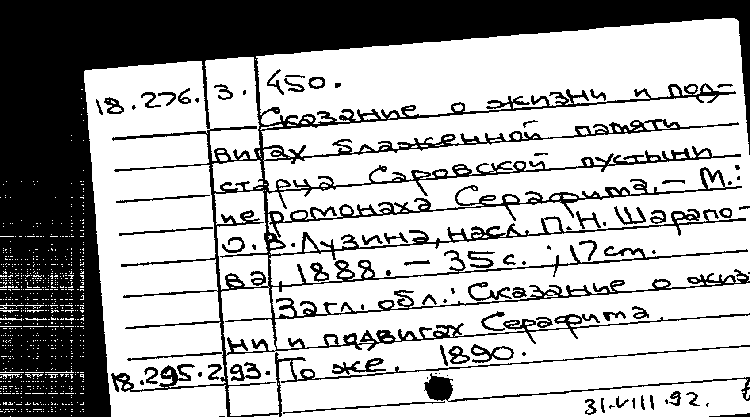 18.276.3.450.
Сказание о жизни и под-
вигах блаженной памяти
старца Саровской пустыни
иеромонаха Серафима. – М.:
О.В. Лузина, насл. П.Н. Шарапо-
ва, 1888. – 35 с. ; 17 cm.
Загл. обл.: Сказание о жиз
ни и подвигах Серафима.
18.295.2.93. То же. 1890.
31.VIII.92.